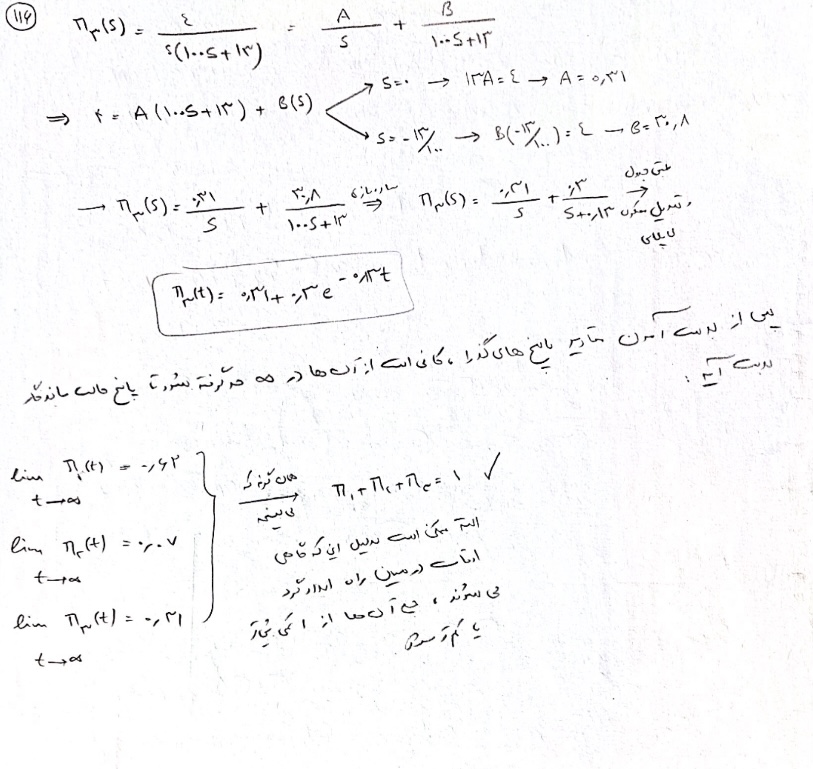 ۱۱۶
π۳(s) = ۴ / s(۱۰۰s+۱۳) = A/s + B/(۱۰۰s+۱۳)
⇒ ۴ = A(۱۰۰s+۱۳) + B(s)
s=۰ → ۱۳A=۴ → A=۰٫۳۱
s=-۱۳/۱۰۰ → B(-۱۳/۱۰۰)=۴ → B=۳۰٫۸
→ π۳(s) = ۰٫۳۱/s + ۳۰٫۸/(۱۰۰s+۱۳) ساده‌سازی ⇒ π۳(s) = ۰٫۳۱/s + ۰٫۳/(s+۰٫۱۳) → طبق جدول و تبدیل معکوس لاپلاس
π۳(t) = ۰٫۳۱ + ۰٫۳ e^-۰٫۱۳t
پس از بدست آمدن مقادیر پاسخ های گذرا ، کافی است از آن ها در ∞ حد گرفته شود تا پاسخ حالت ماندگار
بدست آید :
lim t→∞ π۱(t) = ۰٫۶۲
lim t→∞ π۲(t) = ۰٫۰۷
lim t→∞ π۳(t) = ۰٫۳۱
همان گونه که می بینیم → π۱+π۲+π۳=۱ ✓
البته ممکن است بدلیل این که گاهی
اوقات در حین راه اعداد گرد
می شوند ، جمع آن ها از ۱ کمی بیشتر
یا کم تر شود